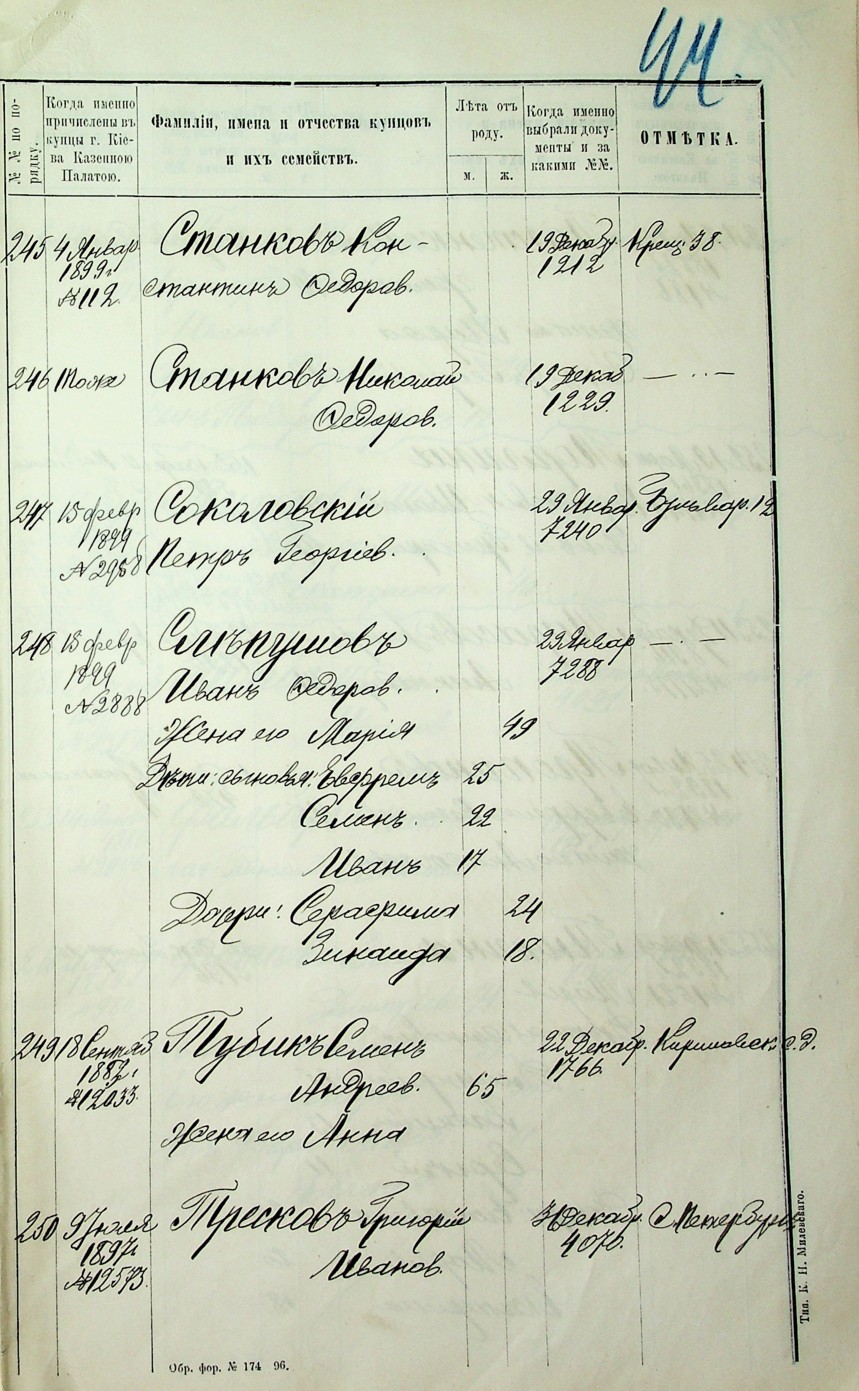 44.
№№ по по-
рядку.
Когда именно
причислены въ
купцы г. Кіе-
ва Казенною
Палатою.
Фамиліи, имена и отчества купцовъ
и ихъ семействъ.
Лѣта отъ
роду.
м.
ж.
Когда именно
выбрали доку-
менты и за
какими №№.
ОТМѢТКА.
245 4 Январ Станковъ Кон- 19 Декабр. Крещ. 38.
1899 г. стантинъ Ѳедоров. 1212
№112.
246 тоже Станковъ Николай 19 Декаб — " —
Ѳедоров. 1229.
247 15 февр Соколовскій 29 Январ. Бульвар. 12
1899 Петръ Георгіев. 7240
№2958
248 15 февр Слѣпушовъ 29 Январ — " —
1899 Иванъ Ѳедоров. 7288
№2888
Жена его Марія 49
Дѣти: сыновья: Евфремъ 25
Семенъ 22
Иванъ 17
Дочери: Серафима 24
Зинаида 18.
249 18 Сентяб Тубикъ Семенъ 22 Декабр. с.д.
1887 г. Андреев. 65 1766.
№12033.
Жена его Анна
250 9 Іюля Тресковъ Григорій 31 Декабр. С Петербургъ
1897 г. Иванов. 4076.
№12573.
Обр. фор. № 174 96.
Тип. К. Н. Милевскаго.